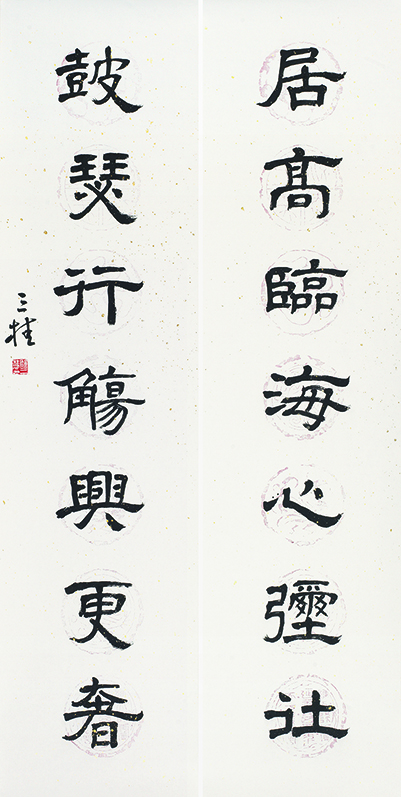 居高臨海心彌壮
皷瑟行觴興更奢
三桂